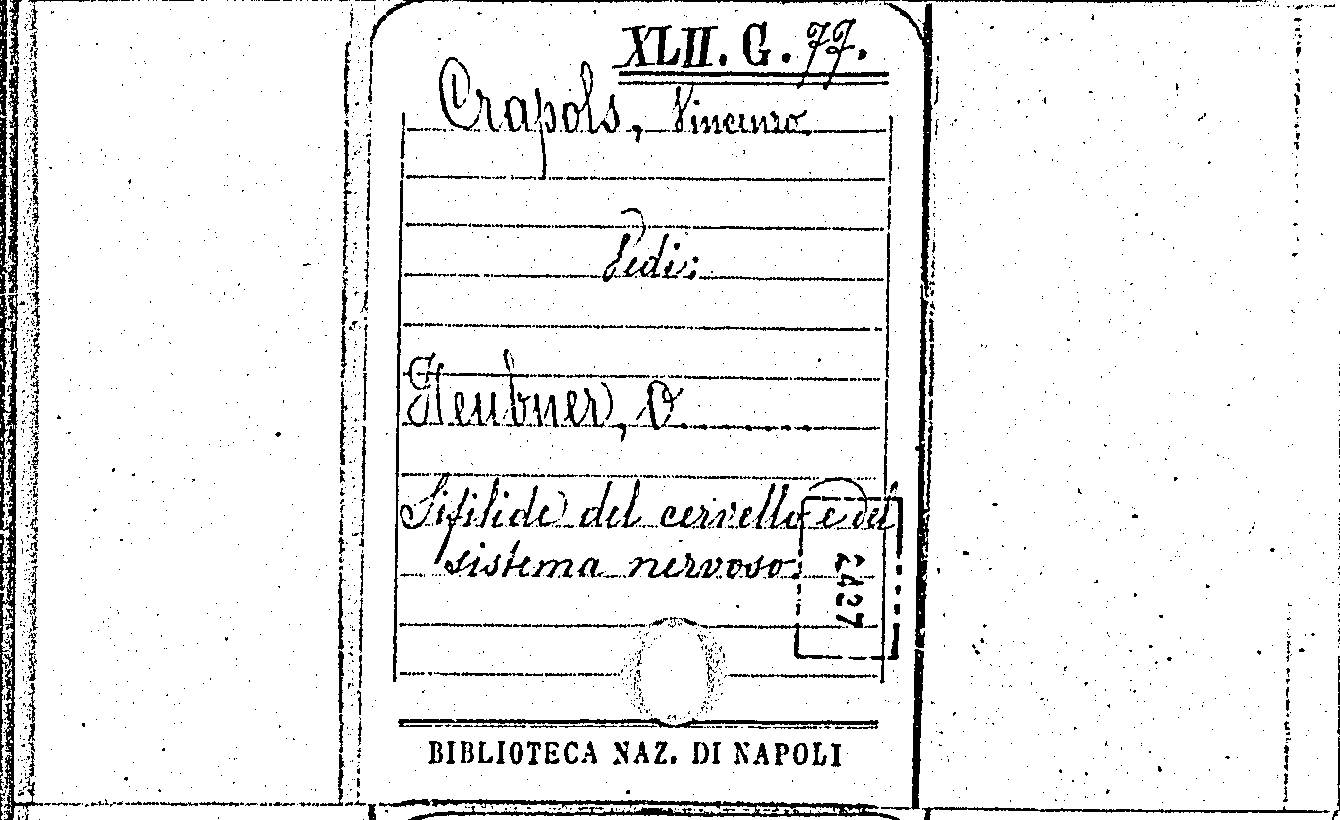 XLII. G. 77.
Crapols, Vincenzo
Vedi:
Heubner, O.
Sifilide del cervello e del
sistema nervoso.
2427
BIBLIOTECA NAZ. DI NAPOLI